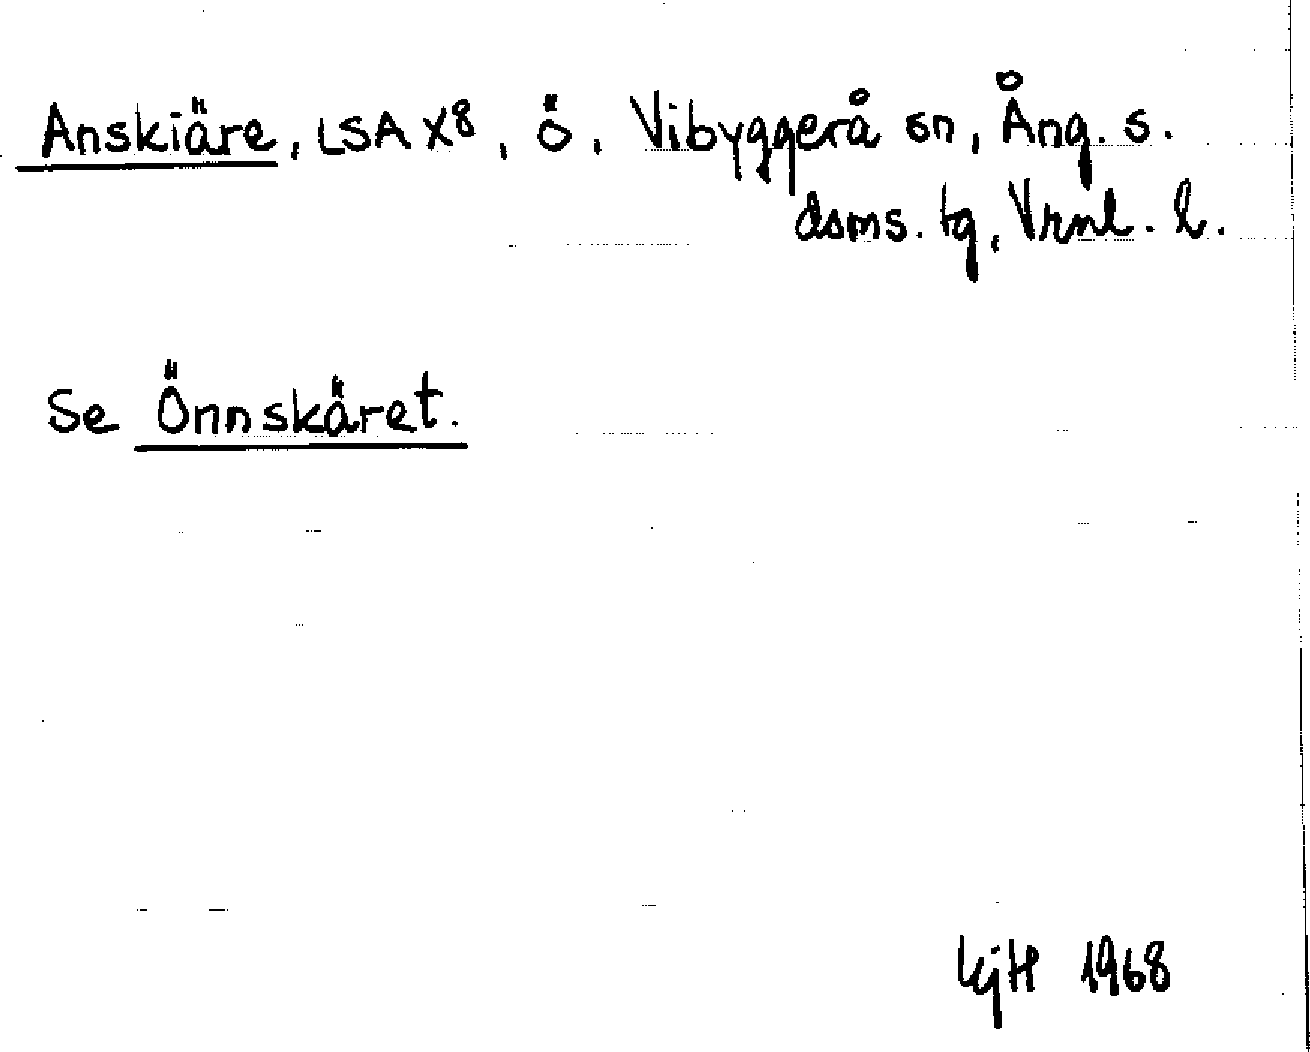 Anskiäre, LSA X8, ö, Vibyggerå sn, Ång. s.
doms. tg, Vrnl. l.
Se Önnskäret.
KjH 1968